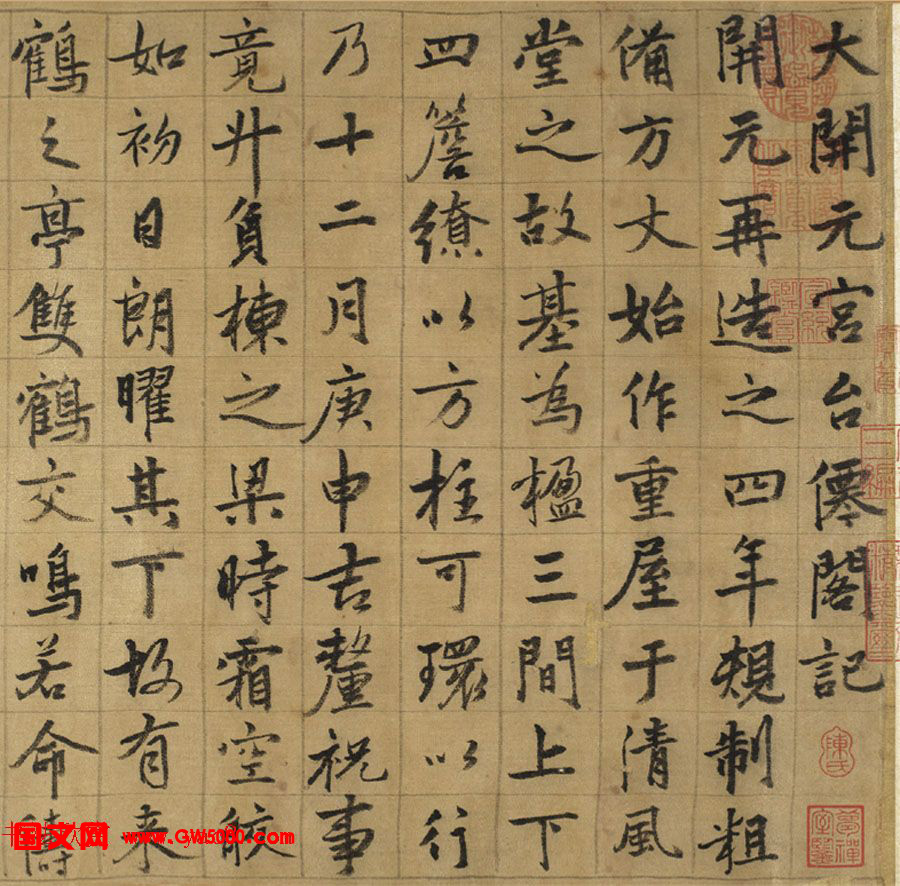 大開元宮台僊閣記
開元再造之四年規制粗
備方丈始作重屋于清風
堂之故基為楹三間上下
四簷繚以方柱可環以行
乃十二月庚申吉釐祝事
竟升負棟之梁時霜空皎
如初日朗曜其下故有来
鶴之亭雙鶴交鳴若命儔
陳氏
国文网 www.GW5000.com